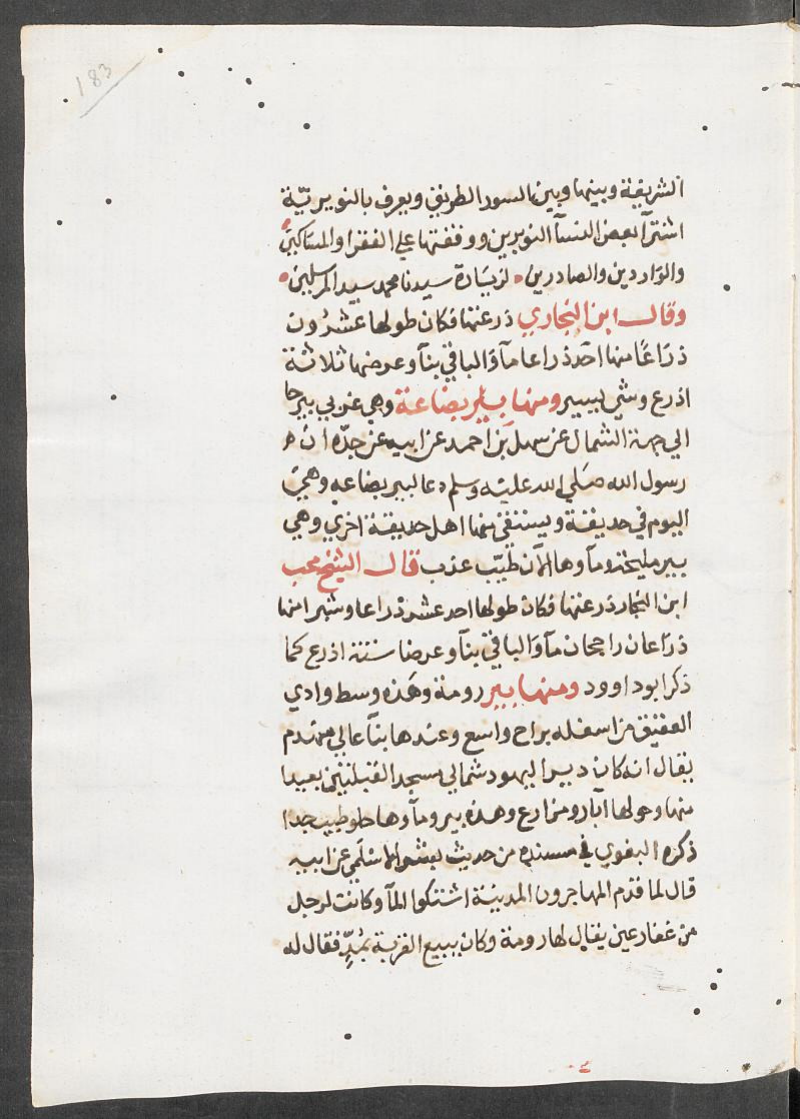 183
الشريفة وبينها وبين السور الطريق ويعرف بالنويريّة
اشترا بعض النسآ النويرين ووقفتها علي الفقرا والمساكين
والواردين والصادرين لزيادة سيدنا محمد سيد المرسلين
وقال ابن النجاري ذرعتها فكان طولها عشرون
ذراعًا منها احد ذراعا مآ والباقي بنآ وعرضها ثلاثة
اذرع وشي يسير ومنها بير بضاعة وهي غربي بيرحا
الي جهة الشمال عن سهل بن احمد عن ابيه عن جدّه ان
رسول الله صلي الله عليه وسلم دعا لبير بضاعه وهي
اليوم في حديقة ويستقي منها اهل حديقة اخري وهي
بير مليحة ومآوها الآن طيّب عذب قال الشيخ محب
ابن النجار ذرعتها فكان طولها احد عشر ذراعا وشبرا منها
ذراعان راجحان مآ والباقي بنآ وعرضا ستة اذرع كما
ذكر ابو داوود ومنها بير رومة وهذه وسط وادي
العقيق من اسفله براح واسع وعندها بنآ عالي مهتدم
يقال انه كان ديرا ليهود شمالي مسجد القبلتين بعيدا
منها وحولها آبار ومزارع وهذه بير ومآوها حلو طيب جدا
ذكره البغوي في مسنده من حديث بشر الاسلمي عن ابيه
قال لما قدم المهاجرون المدينة اشتكوا المآ وكانت لرجل
من غفار عين يقال لها رومة وكان يبيع القربة بمُدٍّ فقال له